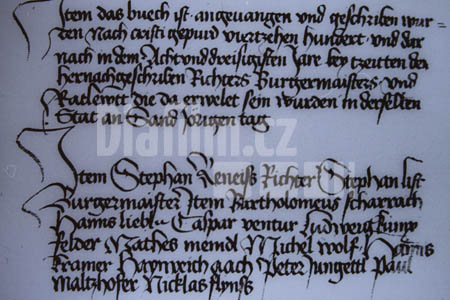 Item das buech ist angeuangen und geschriben wur-
den Nach cristi gepurd vierzehen hundert und dar
nach in dem Acht und dreisigisten Jare bey tzeiten der
hernachgeschriben Richters Burgermaisters und
Ratlewtt die da erwelet sein wurden in derselben
Stat an Sand Jorigen tag
Item Stephan Reneiss Richter Stephan list
Burgermaister Item Bartholomeus scharrach
Hanns liebl Caspar ventur Ludweig kump
felder Mathes meindl Michel wolf Hanns
kramer Haynreich aach Peter Jungettl Paul
Maltzhofer Nicklas
Dianin.cz